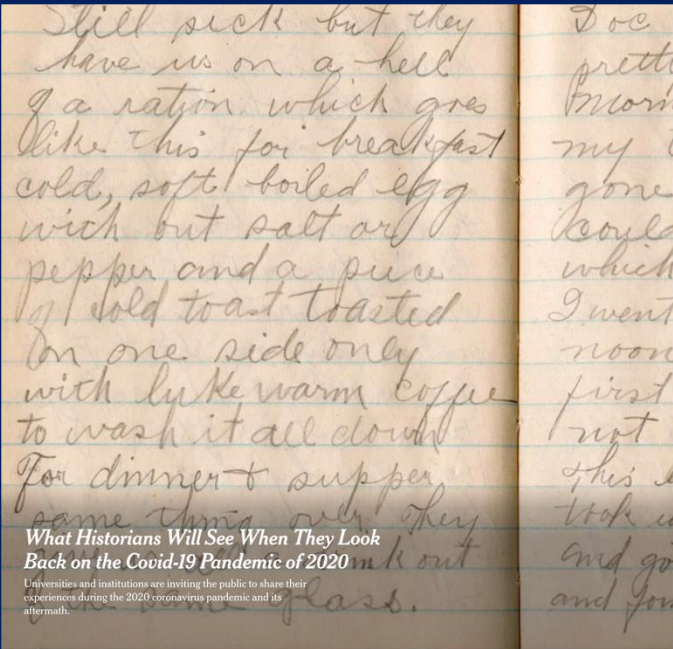 Still sick but they
have us on a hell
of a ration which goes
like this for breakfast
cold, soft boiled egg
with out salt or
pepper and a piece
of cold toast toasted
on one side only
with luke warm coffee
to wash it all down
For dinner & supper
same thing over they
drink out
of the same glass.
Doc
prett
morn
my
gone
could
which
I went
noon
first
not
this
took
and go
and fou
What Historians Will See When They Look
Back on the Covid-19 Pandemic of 2020
Universities and institutions are inviting the public to share their
experiences during the 2020 coronavirus pandemic and its
aftermath.